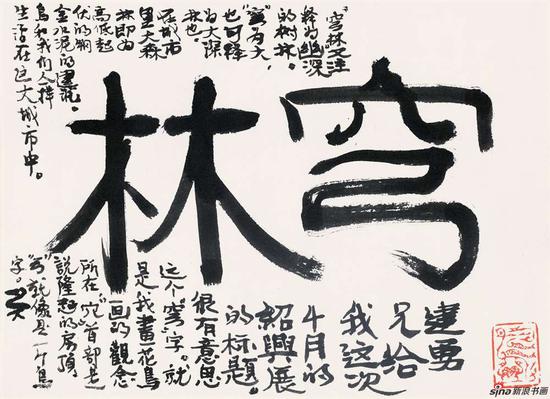 穹林
"穹"林又注
释为幽深
的树林。
"穹"为大，
也可释
为大深
林也。
在城市
里大森
林即为
高低起
伏的钢
金水泥的建筑。
鸟和我们人样
生活在这大城市中。
建勇
兄给
我这次
4月的
紹興展
的标题。
很有意思
这个穹字。就
是我畫花鸟
画的觀念
所在"穴"首部是
説隆起的房頂
"弓"就像是一个鸟
字。
sina新浪书画